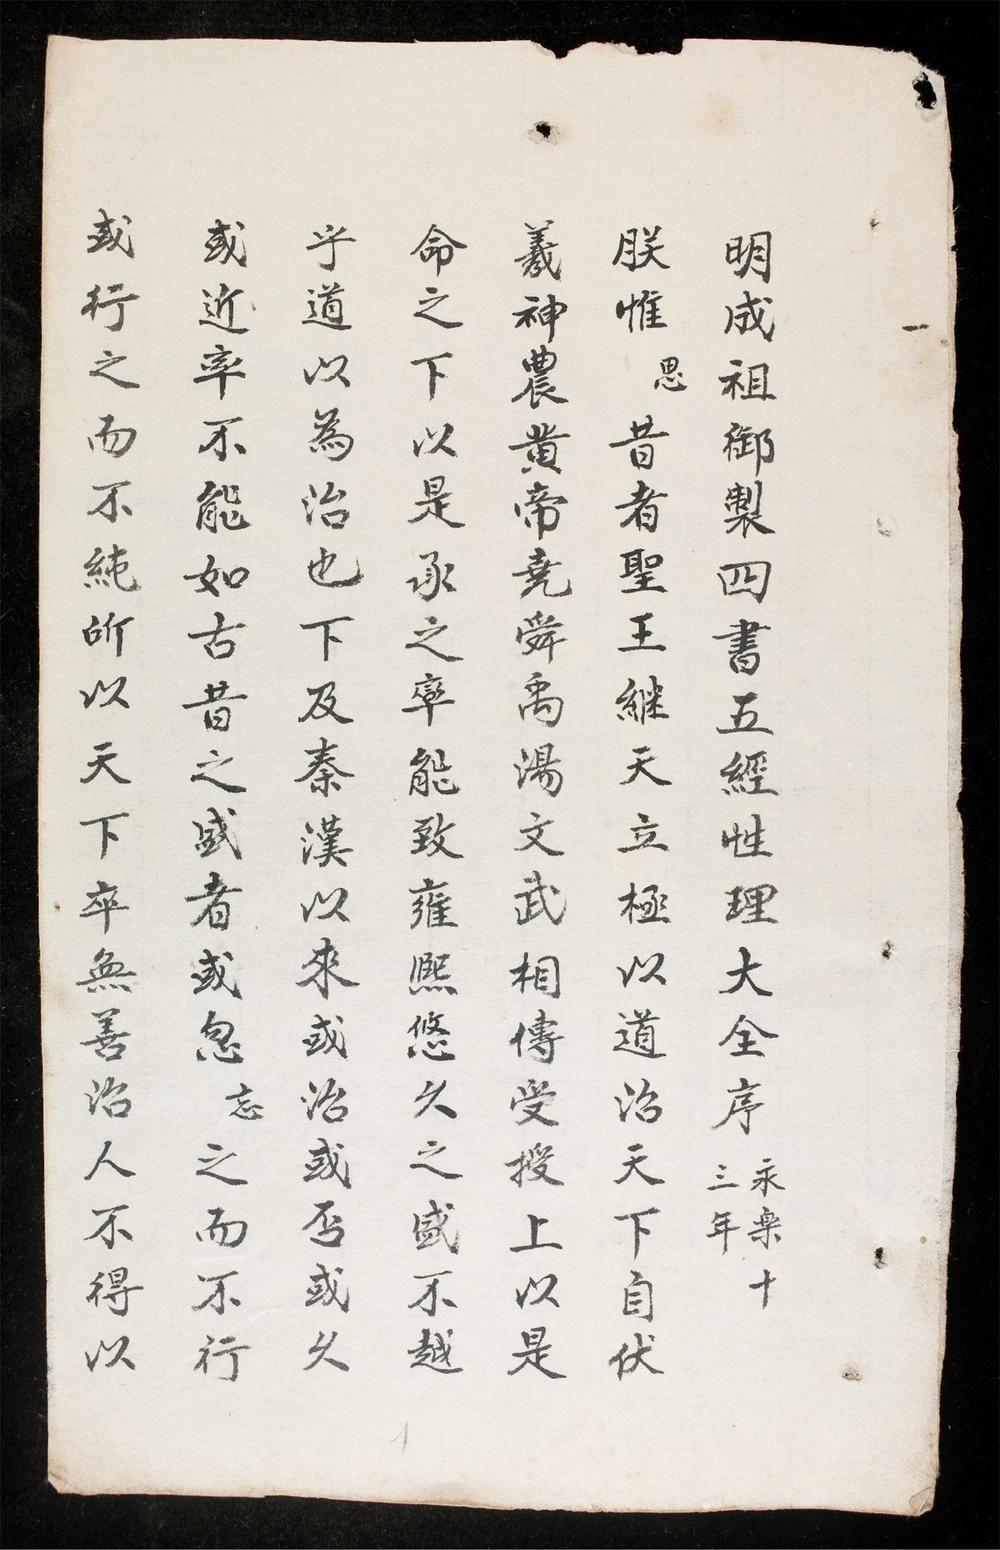 一
明成祖御製四書五經性理大全序 永樂十三年
朕惟思昔者聖王継天立極以道治天下自伏
羲神農黄帝堯舜禹湯文武相傳受授上以是
命之下以是承之率能致雍熙悠久之盛不越
乎道以為治也下及秦漢以來或治或否或久
或近率不能如古昔之盛者或忽忘之而不行
或行之而不純所以天下卒無善治人不得以
1